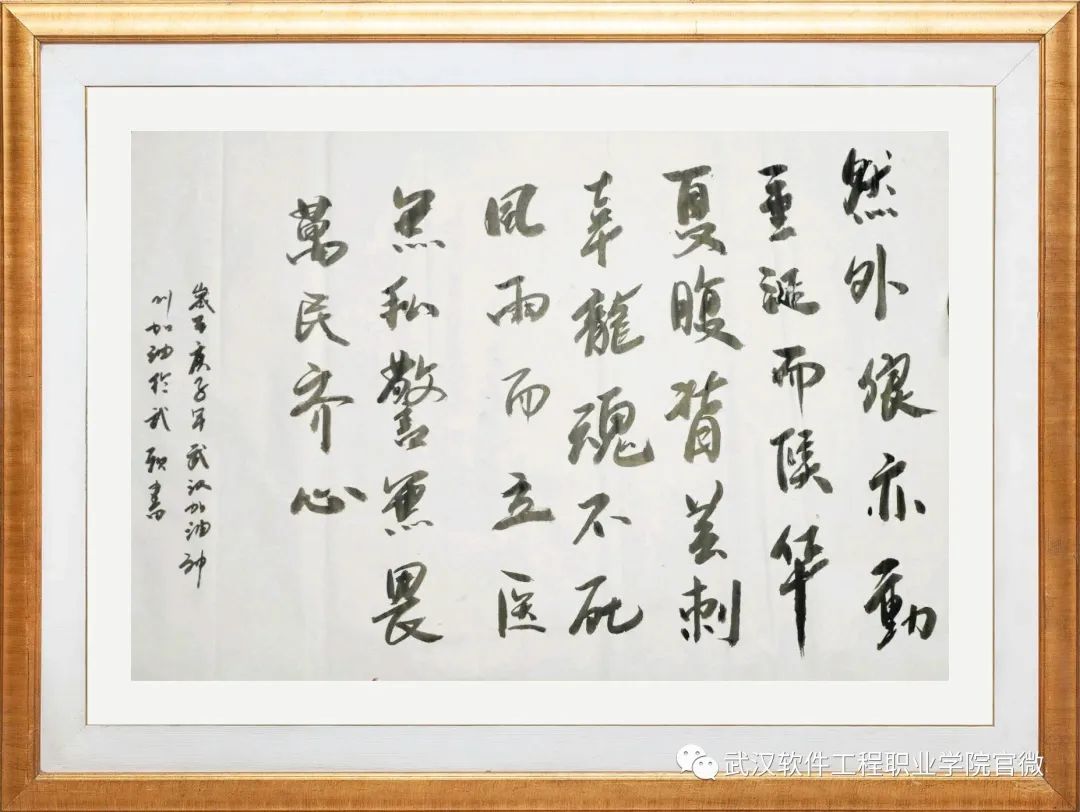 然外狼亦動
垂涎而候华
夏腹背芸刺
幸龍魂不死
風雨而立医
無私警無畏
萬民齐心
歲在庚子年武汉加油神
川加油於武 書
武汉软件工程职业学院官微